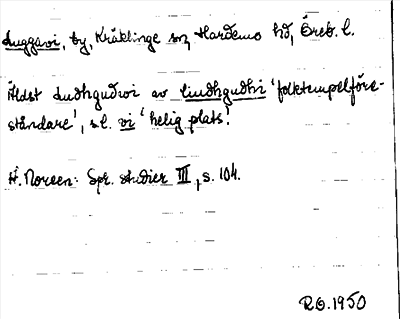 Luggavi, by, Kräklinge sn, Hardemo hd, Öreb. l.
Äldst Ludhgudwi av liudhgudhi 'folktempelföre-
ståndare', s.l. vi 'helig plats'.
A. Noreen: Spr. studier III, s. 104.
R.O. 1950